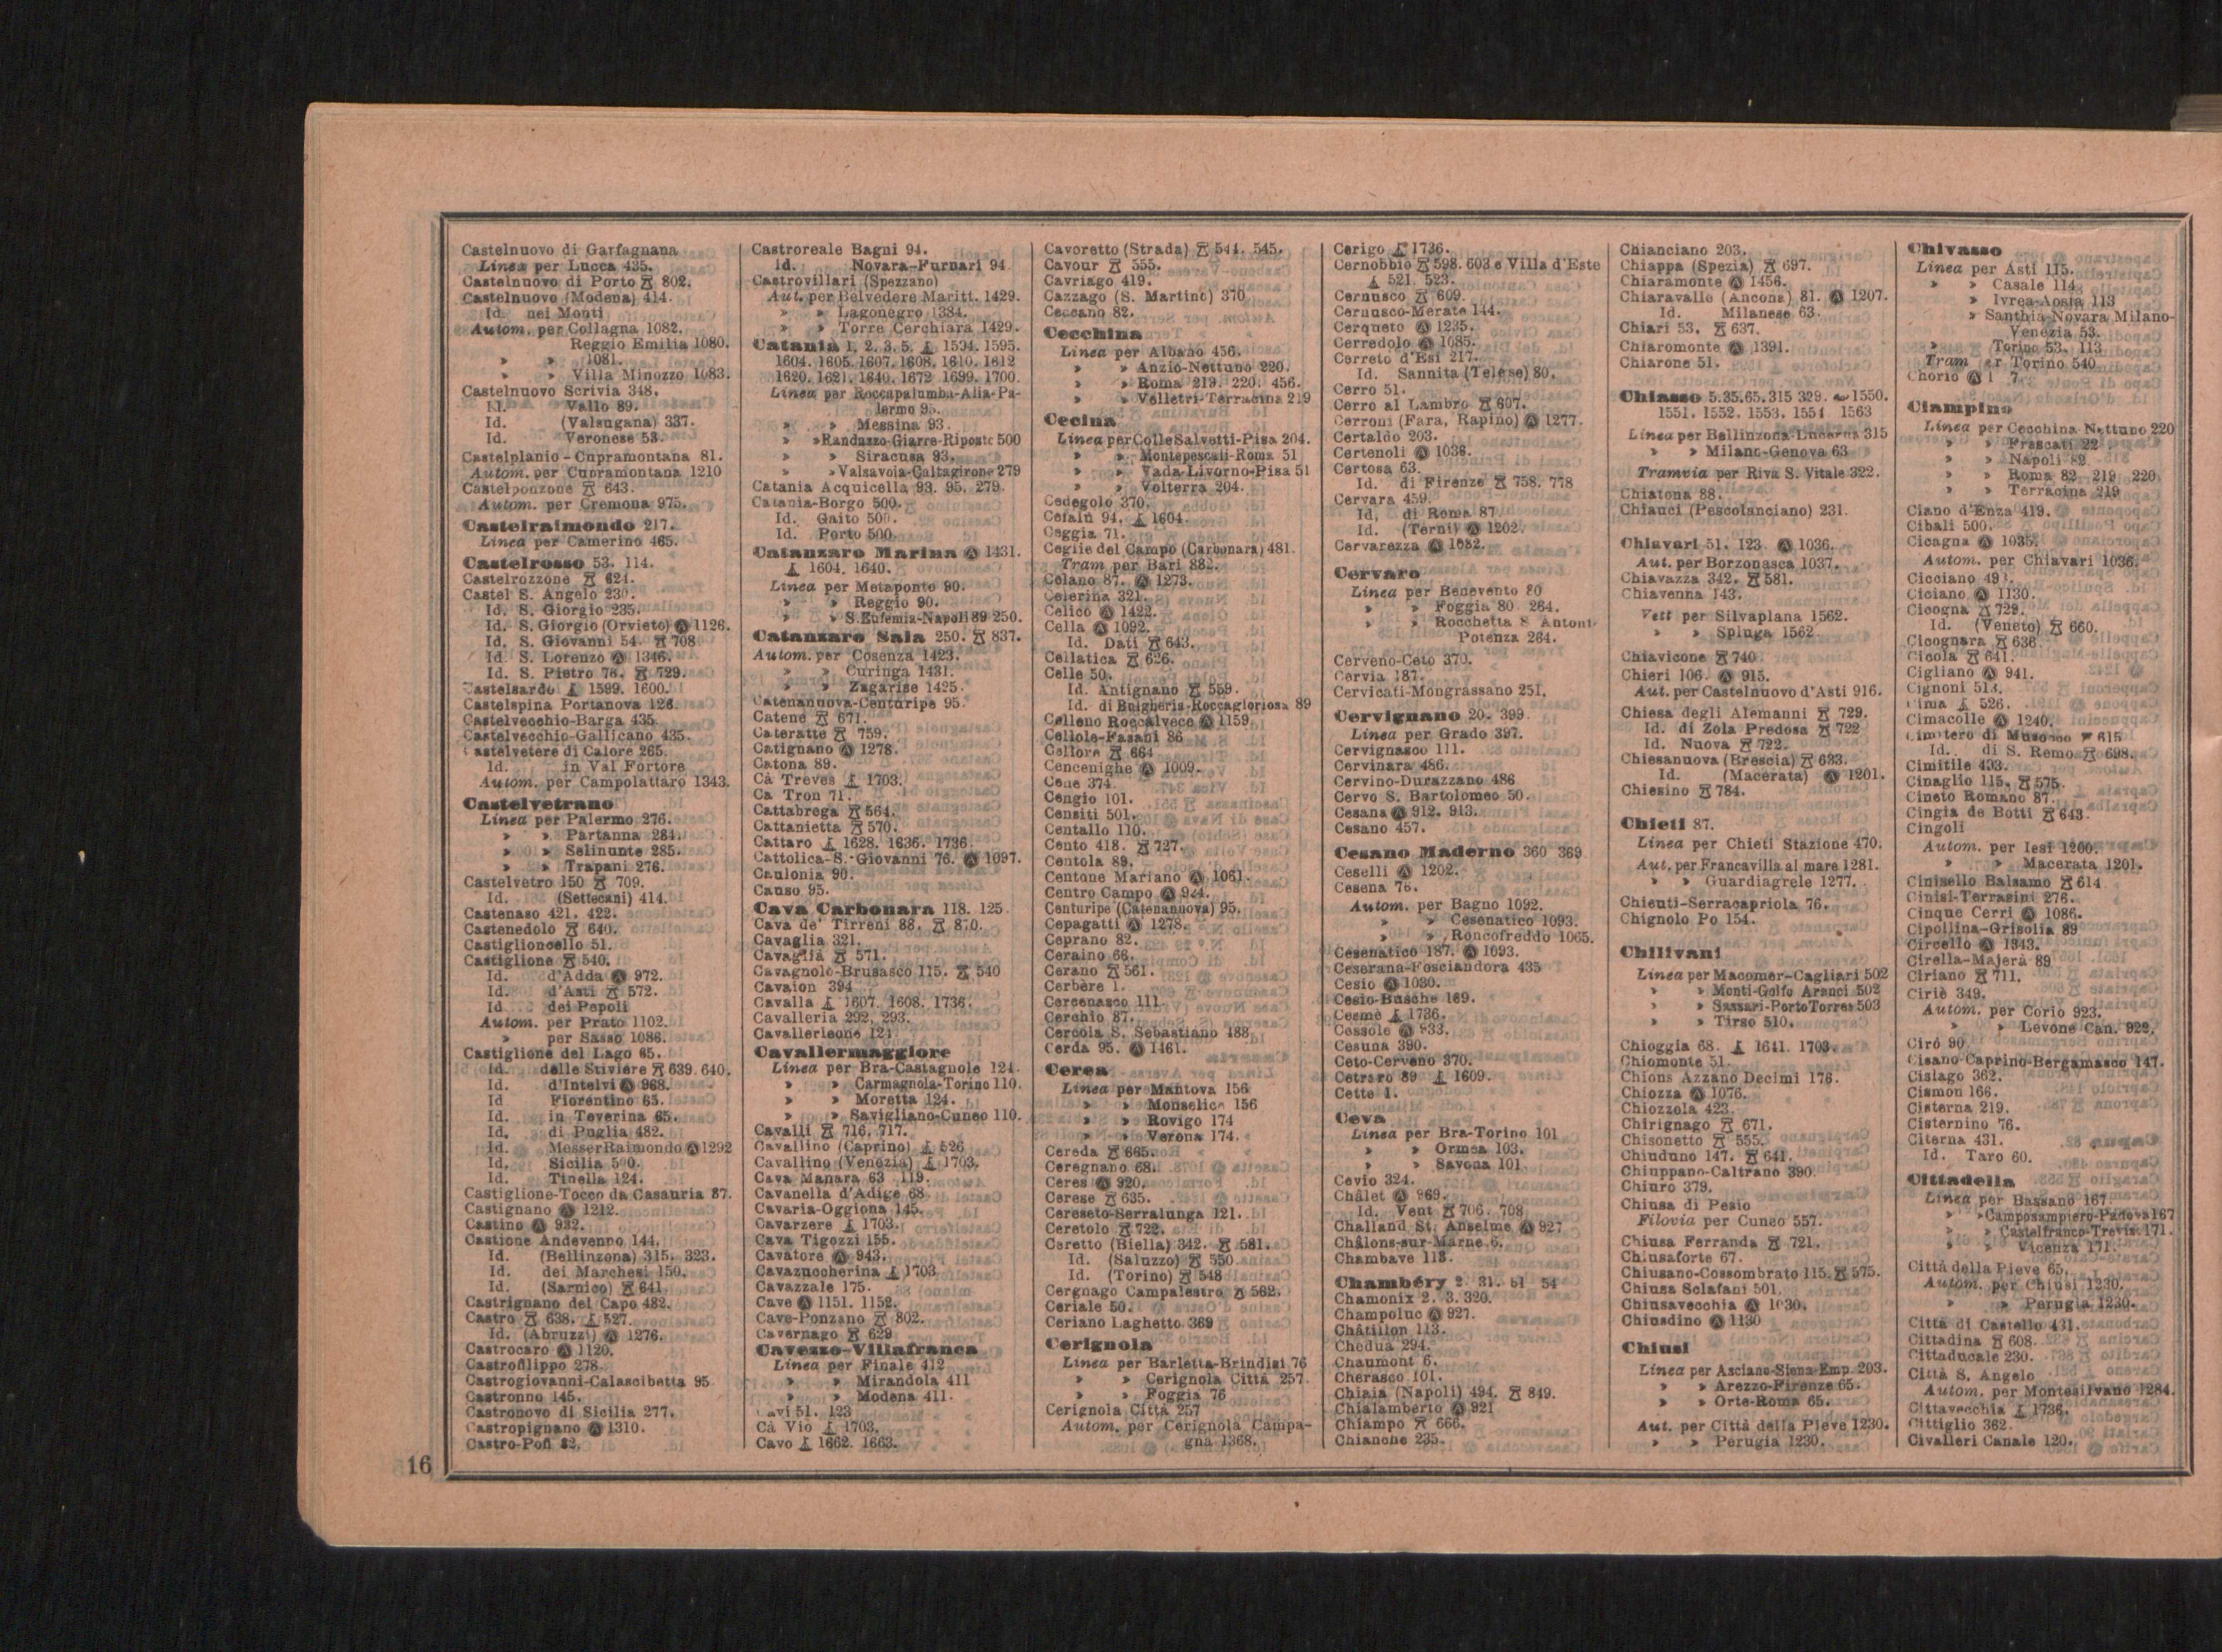 Castelnuovo di Garfagnana
Linea per Lucca 435.
Castelnuovo di Porto 802.
Castelnuovo (Modena) 414.
Id. nei Monti
Autom. per Collagna 1082.
Reggio Emilia 1080.
» » 1081.
» » Villa Minozzo 1083.
Castelnuovo Scrivia 348.
Id. Vallo 89.
Id. (Valsugana) 337.
Id. Veronese 53.
Castelplanio-Cupramontana 81.
Autom. per Cupramontana 1210
Castelponzone 643.
Autom. per Cremona 975.
Castelraimondo 217.
Linea per Camerino 465.
Castelrosso 53. 114.
Castelrozzone 621.
Castel S. Angelo 230.
Id. S. Giorgio 235.
Id. S. Giorgio (Orvieto) Ⓐ 1126.
Id. S. Giovanni 54. 708
Id. S. Lorenzo Ⓐ 1346.
Id. S. Pietro 76. 729.
Castelsardo 1599. 1600.
Castelspina Portanova 126.
Castelvecchio-Barga 435.
Castelvecchio-Gallicano 435.
Castelvetere di Calore 265.
Id. in Val Fortore
Autom. per Campolattaro 1343.
Castelvetrano
Linea per Palermo 276.
» » Partanna 284.
» » Selinunte 285.
» » Trapani 276.
Castelvetro 150 709.
Id. (Settecani) 414.
Castenaso 421. 422.
Castenedolo 640.
Castiglioncello 51.
Castiglione 540.
Id. d'Adda Ⓐ 972.
Id. d'Asti 572.
Id. dei Pepoli
Autom. per Prato 1102.
» per Sasso 1086.
Castiglione del Lago 65.
Id. delle Stiviere 639. 640.
Id. d'Intelvi Ⓐ 968.
Id Fiorentino 65.
Id. in Teverina 65.
Id. di Puglia 482.
Id. Messer Raimondo Ⓐ 1292
Id. Sicilia 500.
Id. Tinella 124.
Castiglione-Tocco da Casauria 87.
Castignano Ⓐ 1212.
Castino Ⓐ 932.
Castione Andevenno 144.
Id. (Bellinzona) 315. 323.
Id. dei Marchesi 150.
Id. (Sarnico) 641
Castrignano del Capo 482.
Castro 638. 527.
Id. (Abruzzi) Ⓐ 1276.
Castrocaro Ⓐ 1120.
Castrofilippo 278.
Castrogiovanni-Calascibetta 95
Castronno 145.
Castronovo di Sicilia 277.
Castropignano Ⓐ 1310.
Castro-Pofi 82.
Castroreale Bagni 94.
Id. Novara-Furnari 94
Castrovillari (Spezzano)
Aut. per Belvedere Maritt. 1429.
» » Lagonegro 1384.
» » Torre Cerchiara 1429.
Catania 1. 2. 3. 5. 1594. 1595.
1604. 1605. 1607. 1608. 1610. 1612
1620. 1621. 1640. 1672 1699. 1700.
Linea per Roccapalumba-Alia-Pa-
lermo 95.
» » Messina 93.
» » Randazzo-Giarre-Riposto 500
» » Siracusa 93.
» » Valsavoia-Caltagirone 279
Catania Acquicella 93. 95. 279.
Catania-Borgo 500.
Id. Gaito 500.
Id. Porto 500
Catanzaro Marina Ⓐ 1431.
1604. 1640.
Linea per Metaponto 90.
» » Reggio 90.
» » S. Eufemia-Napoli 89 250.
Catanzaro Sala 250. 837.
Autom. per Cosenza 1423.
» » Curinga 1431.
» » Zagarise 1425.
Catenanuova-Centuripe 95.
Catene 671.
Cateratte 759.
Catignano Ⓐ 1278.
Catona 89.
Cà Treves 1703.
Ca Tron 71.
Cattabrega 564.
Cattanietta 570.
Cattaro 1628. 1636. 1736
Cattolica-S. Giovanni 76. Ⓐ 1097.
Caulonia 90.
Causo 95.
Cava Carbonara 118. 125
Cava de' Tirreni 88. 870.
Cavaglia 321.
Cavaglià 571.
Cavagnolo-Brusasco 115. 540
Cavaion 394
Cavalla 1607. 1608. 1736.
Cavalleria 292. 293.
Cavallerleone 124
Cavallermaggiore
Linea per Bra-Castagnole 124.
» » Carmagnola-Torino 110.
» » Moretta 124.
» » Savigliano-Cuneo 110.
Cavalli 716. 717.
Cavallino (Caprino) 526
Cavallino (Venezia) 1703.
Cava Manara 63 119.
Cavanella d'Adige 68
Cavaria-Oggiona 145.
Cavarzere 1703.
Cava Tigozzi 155.
Cavatore Ⓐ 943.
Cavazuccherina 1703
Cavazzale 175.
Cave Ⓐ 1151. 1152.
Cave-Ponzano 802.
Cavernago 629
Cavezzo-Villafranca
Linea per Finale 412
» » Mirandola 411
» » Modena 411.
Cavi 51. 123
Cà Vio 1703.
Cavo 1662. 1663.
Cavoretto (Strada) 544. 545.
Cavour 555.
Cavriago 419.
Cazzago (S. Martino) 370
Ceccano 82.
Cecchina
Linea per Albano 456.
» » Anzio-Nettuno 220.
» » Roma 219. 220. 456.
» » Velletri-Terracina 219
Cecina
Linea per Colle Salvetti-Pisa 204.
» » Montepescali-Roma 51
» » Vada-Livorno-Pisa 51
» » Volterra 204.
Cedegolo 370.
Cefalù 94. 1604.
Ceggia 71.
Ceglie del Campo (Carbonara) 481.
Tram per Bari 882.
Celano 87. Ⓐ 1273.
Celerina 321.
Celico Ⓐ 1422.
Cella Ⓐ 1092.
Id. Dati 643.
Cellatica 626.
Celle 50.
Id. Antignano 559.
Id. di Bulgheria-Roccagloriosa 89
Celleno Roccalvece Ⓐ 1159
Cellole-Fasani 86
Cellore 664
Cencenighe Ⓐ 1009.
Cene 374.
Cengio 101.
Censiti 501.
Centallo 110.
Cento 418. 727.
Centola 89.
Centone Mariano Ⓐ 1061
Centro Campo Ⓐ 924.
Centuripe (Catenanuova) 95.
Cepagatti Ⓐ 1278.
Ceprano 82.
Ceraino 66.
Cerano 561.
Cerbère 1.
Cercenasco 111
Cerchio 87.
Cercola S. Sebastiano 488
Cerda 95. Ⓐ 1461.
Cerea
Linea per Mantova 156
» » Monselice 156
» » Rovigo 174
» » Verona 174.
Cereda 665.
Ceregnano 68.
Ceres Ⓐ 920.
Cerese 635.
Cereseto-Serralunga 121.
Ceretolo 722.
Ceretto (Biella) 342. 581.
Id. (Saluzzo) 550
Id. (Torino) 548
Cergnago Campalestro 562.
Ceriale 50.
Ceriano Laghetto 369
Cerignola
Linea per Barletta-Brindisi 76
» » Cerignola Città 257
» » Foggia 76
Cerignola Città 257
Autom. per Cerignola Campa-
gna 1368.
Cerigo 1736.
Cernobbio 598. 603 e Villa d'Este
521. 523.
Cernusco 609.
Cernusco-Merate 144.
Cerqueto Ⓐ 1235.
Cerredolo Ⓐ 1085.
Cerreto d'Esi 217.
Id. Sannita (Telese) 80.
Cerro 51.
Cerro al Lambro 607.
Cerroni (Fara, Rapino) Ⓐ 1277.
Certaldo 203.
Certenoli Ⓐ 1036.
Certosa 63.
Id. di Firenze 758. 778
Cervara 459.
Id. di Roma 87
Id. (Terni) Ⓐ 1202.
Cervarezza Ⓐ 1082.
Cervaro
Linea per Benevento 80
» » Foggia 80 264.
» » Rocchetta S Antoni
Potenza 264.
Cerveno-Ceto 370.
Cervia 187.
Cervicati-Mongrassano 251.
Cervignano 20. 399
Linea per Grado 397.
Cervignasco 111.
Cervinara 486.
Cervino-Durazzano 486
Cervo S. Bartolomeo 50.
Cesana Ⓐ 912. 913.
Cesano 457.
Cesano Maderno 360 369
Ceselli Ⓐ 1202.
Cesena 76.
Autom. per Bagno 1092.
» » Cesenatico 1093.
» » Roncofreddo 1065.
Cesenatico 187. Ⓐ 1093.
Ceserana-Fosciandora 435
Cesio Ⓐ 1030.
Cesio-Busche 169.
Cesmè 1736.
Cessole Ⓐ 933.
Cesuna 390.
Ceto-Cerveno 370.
Cetraro 89 1609.
Cette 1.
Ceva
Linea per Bra-Torino 101
» » Ormea 103.
» » Savona 101
Cevio 324.
Châlet Ⓐ 969.
Id. Vent 706. 708
Challand St. Anselme Ⓐ 927
Châlons-sur-Marne 6.
Chambave 113.
Chambéry 2. 31. 51 54
Chamonix 2. 3. 320.
Champoluc Ⓐ 927.
Châtillon 113.
Chedua 294.
Chaumont 6.
Cherasco 101.
Chiaia (Napoli) 494. 849.
Chialamberto Ⓐ 921
Chiampo 666.
Chianche 235.
Chianciano 203.
Chiappa (Spezia) 697.
Chiaramonte Ⓐ 1456.
Chiaravalle (Ancona) 81. Ⓐ 1207.
Id. Milanese 63.
Chiari 53. 637.
Chiaromonte Ⓐ 1391.
Chiarone 51.
Chiasso 5.35.65.315 329. 1550.
1551. 1552. 1553. 1554 1563
Linea per Bellinzona-Lucerna 315
» » Milano-Genova 63
Tramvia per Riva S. Vitale 322.
Chiatona 88.
Chiauci (Pescolanciano) 231.
Chiavari 51. 123 Ⓐ 1036.
Aut. per Borzonasca 1037.
Chiavazza 342. 581.
Chiavenna 143.
Vett per Silvaplana 1562.
» » Spluga 1562
Chiavicone 740
Chieri 106. Ⓐ 915.
Aut. per Castelnuovo d'Asti 916.
Chiesa degli Alemanni 729.
Id. di Zola Predosa 722
Id. Nuova 722.
Chiesanuova (Brescia) 633.
Id. (Macerata) Ⓐ 1201.
Chiesino 784.
Chieti 87.
Linea per Chieti Stazione 470.
Aut. per Francavilla al mare 1281.
» » Guardiagrele 1277.
Chieuti-Serracapriola 76.
Chignolo Po 154.
Chilivani
Linea per Macomer-Cagliari 502
» » Monti-Golfo Aranci 502
» » Sassari-Porto Torres 503
» » Tirso 510.
Chioggia 68. 1641. 1703.
Chiomonte 51.
Chions Azzano Decimi 176.
Chiozza Ⓐ 1076.
Chiozzola 423.
Chirignago 671.
Chisonetto 555.
Chiuduno 147. 641.
Chiuppano-Caltrano 390.
Chiuro 379.
Chiusa di Pesio
Filovia per Cuneo 557.
Chiusa Ferranda 721.
Chiusaforte 67.
Chiusano-Cossombrato 115. 575.
Chiusa Sclafani 501.
Chiusavecchia Ⓐ 1030.
Chiusdino Ⓐ 1130
Chiusi
Linea per Asciano-Siena-Emp. 203.
» » Arezzo-Firenze 65.
» » Orte-Roma 65.
Aut. per Città della Pieve 1230.
» » Perugia 1230.
Chivasso
Linea per Asti 115.
» » Casale 114
» Ivrea-Aosta 113
» Santhià-Novara Milano-
Venezia 53.
» Torino 53. 113
Tram er Torino 540
Chorio Ⓐ
Ciampino
Linea per Cecchina Nettuno 220
» » Frascati 22
» » Napoli 82
» » Roma 82 219 220
» » Terracina 219
Ciano d'Enza 419.
Cibali 500.
Cicagna Ⓐ 1035.
Autom. per Chiavari 1036.
Cicciano 49
Ciciano Ⓐ 1130.
Cicogna 729.
Id. (Veneto) 660.
Cicognara 636
Cicola 641.
Cigliano Ⓐ 941.
Cignoni 513.
Cima 526.
Cimacolle Ⓐ 1240.
Cimitero di Musocco 615
Id. di S. Remo 698.
Cimitile 493.
Cinaglio 115. 575.
Cineto Romano 87.
Cingia de Botti 643.
Cingoli
Autom. per Iesi 1200.
» » Macerata 1201.
Cinisello Balsamo 614
Cinisi-Terrasini 276.
Cinque Cerri Ⓐ 1086.
Cipollina-Grisolia 89
Circello Ⓐ 1343.
Cirella-Majerà 89
Ciriano 711.
Ciriè 349.
Autom. per Corio 923.
» » Levone Can. 922.
Cirò 90
Cisano-Caprino-Bergamasco 147.
Cislago 362.
Cismon 166.
Cisterna 219.
Cisternino 76.
Citerna 431.
Id. Taro 60.
Cittadella
Linea per Bassano 167.
» » Camposampiero-Padova 167
» » Castelfranco-Trevis. 171.
» » Vicenza 171.
Città della Pieve 65.
Autom. per Chiusi 1230.
» » Perugia 1230.
Città di Castello 431.
Cittadina 608.
Cittaducale 230.
Città S. Angelo
Autom. per Montesilvano 1284.
Cittavecchia 1736.
Cittiglio 362.
Civalleri Canale 120.
16